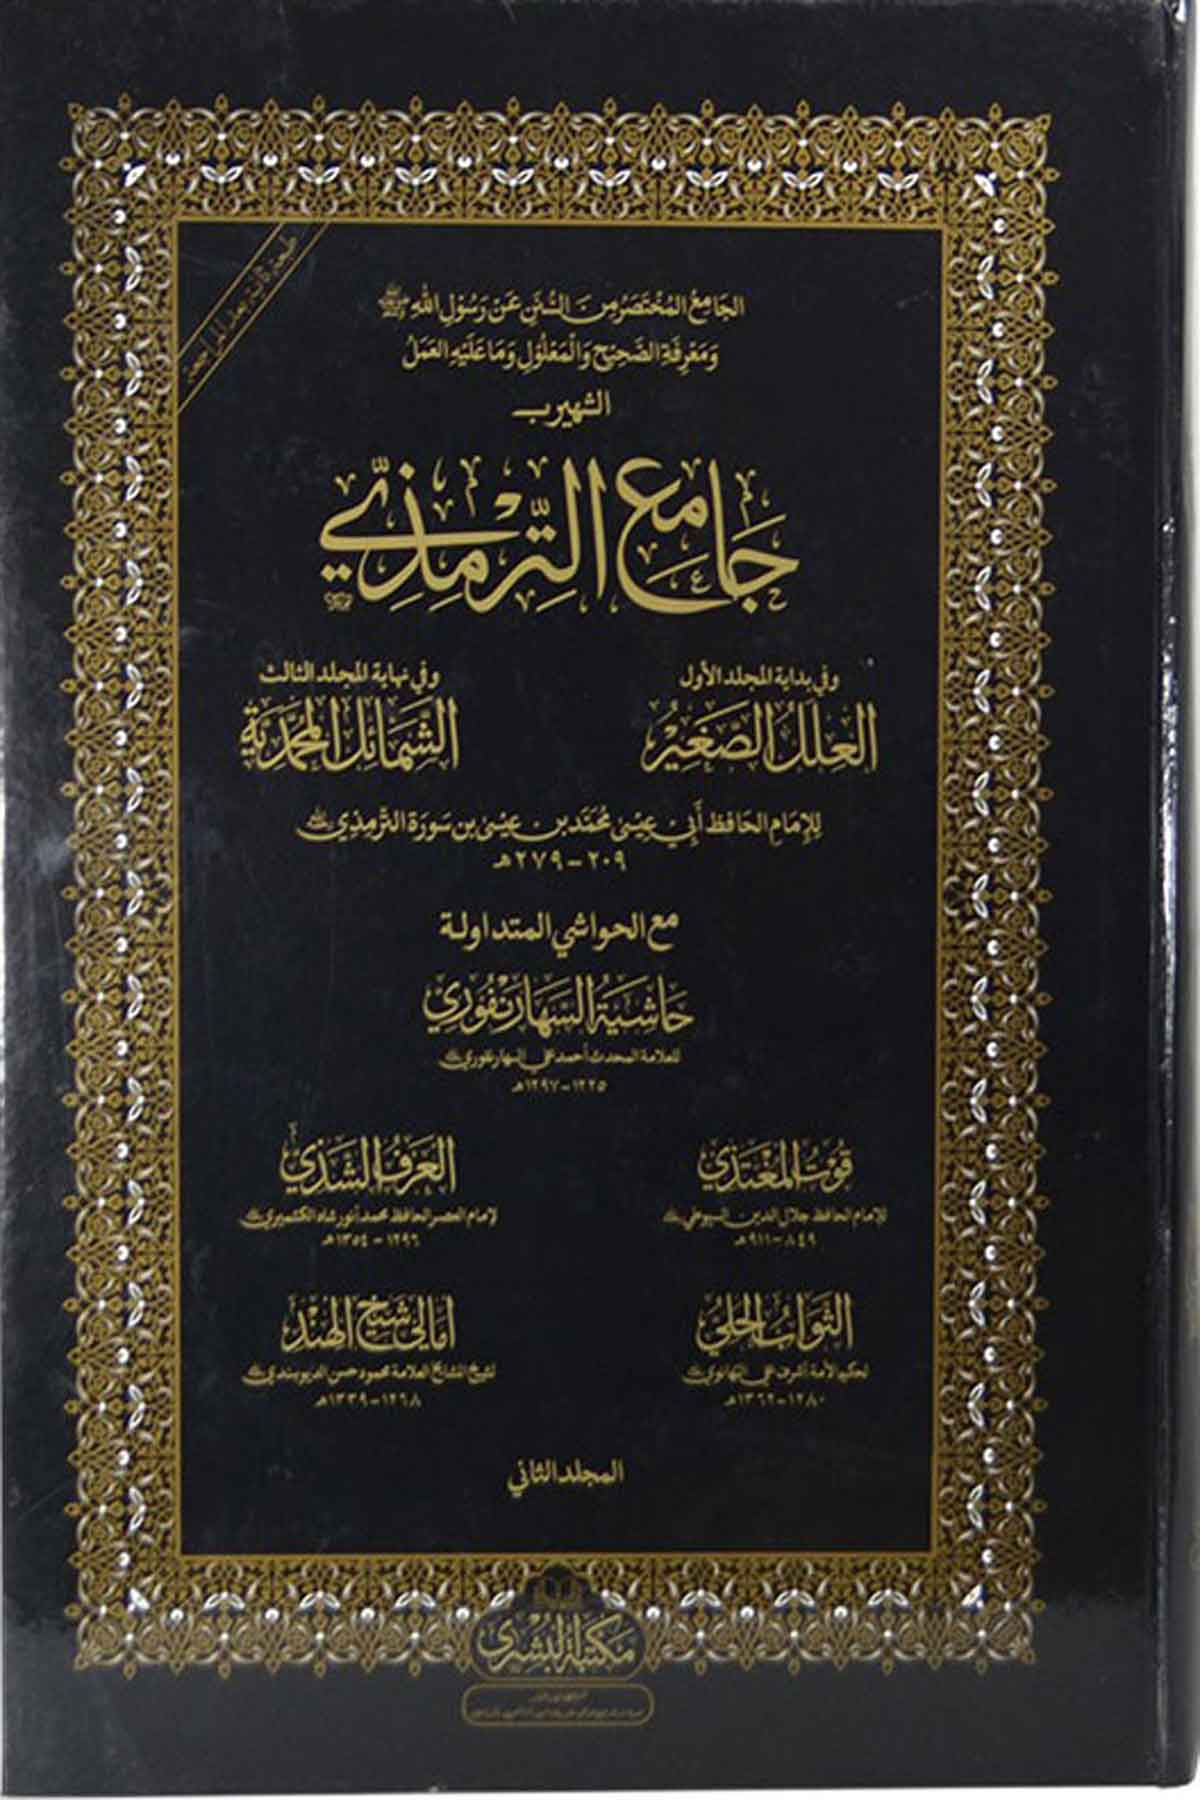 الجَامِعُ المُخْتَصَرُ مِنَ السُّنَنِ عَنْ رَسُوْلِ اللهِ ﷺ
وَمَعْرِفَةِ الصَّحِيْحِ وَالْمَعْلُوْلِ وَمَا عَلَيْهِ العَمَلُ
الشهير بـ
جَامِعُ التِّرْمِذِيّ
وفي بداية المجلد الأول
العِلَلُ الصَّغِيْرُ
وفي نهاية المجلد الثالث
الشَّمَائِلُ المُحَمَّدِيَّة
لِلإمَامِ الحَافِظِ أَبِيْ عِيْسٰى مُحَمَّد بن عِيْسٰى بن سَوْرَة التِّرْمِذِي
٢٠٩ – ٢٧٩هـ
مع الحواشي المتداولة
حَاشِيَةُ السَّهَارَنْفُوْرِي
للعلامة المحدث أحمد علي السهارنفوري
١٢٢٥ – ١٢٩٧هـ
قُوْتُ المُغْتَذِي
للإمام الحافظ جلال الدين السيوطي
٨٤٩ – ٩١١هـ
العَرْفُ الشَّذِي
لإمام العصر الحافظ محمد أنور شاه الكشميري
١٢٩٢ – ١٣٥٤هـ
الثَّوَابُ الحُلِي
لحكيم الأمة أشرف علي التهانوي
١٢٨٠ – ١٣٦٢هـ
أَمَالِي شَيْخِ الهِنْد
لشيخ المشايخ العلامة محمود حسن الديوبندي
١٢٦٨ – ١٣٣٩هـ
المجلد الثاني
مَكتَبَةُ البُشْرٰى